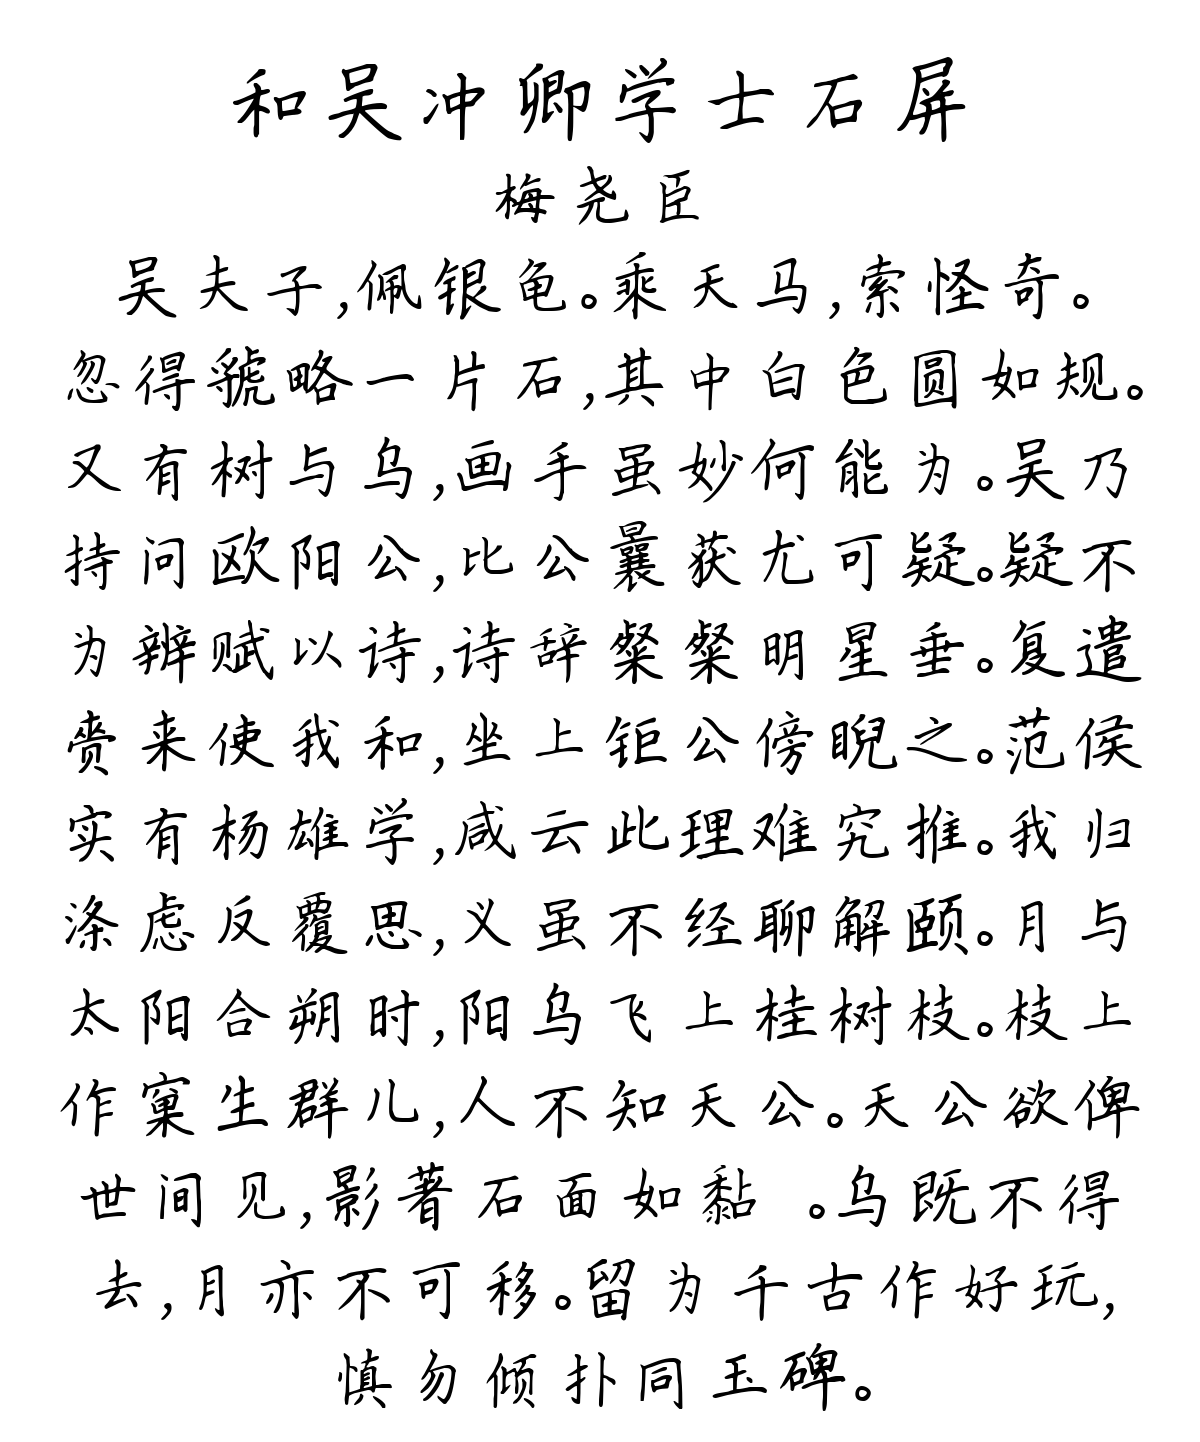 和吴冲卿学士石屏
梅尧臣
吴夫子,佩银龟。乘天马,索怪奇。
忽得虢略一片石,其中白色圆如规。
又有树与乌,画手虽妙何能为。吴乃
持问欧阳公,比公曩获尤可疑。疑不
为辨赋以诗,诗辞粲粲明星垂。复遣
赍来使我和,坐上钜公傍睨之。范侯
实有杨雄学,咸云此理难究推。我归
涤虑反覆思,义虽不经聊解颐。月与
太阳合朔时,阳乌飞上桂树枝。枝上
作窠生群儿,人不知天公。天公欲俾
世间见,影著石面如黏 。乌既不得
去,月亦不可移。留为千古作好玩,
慎勿倾扑同玉碑。